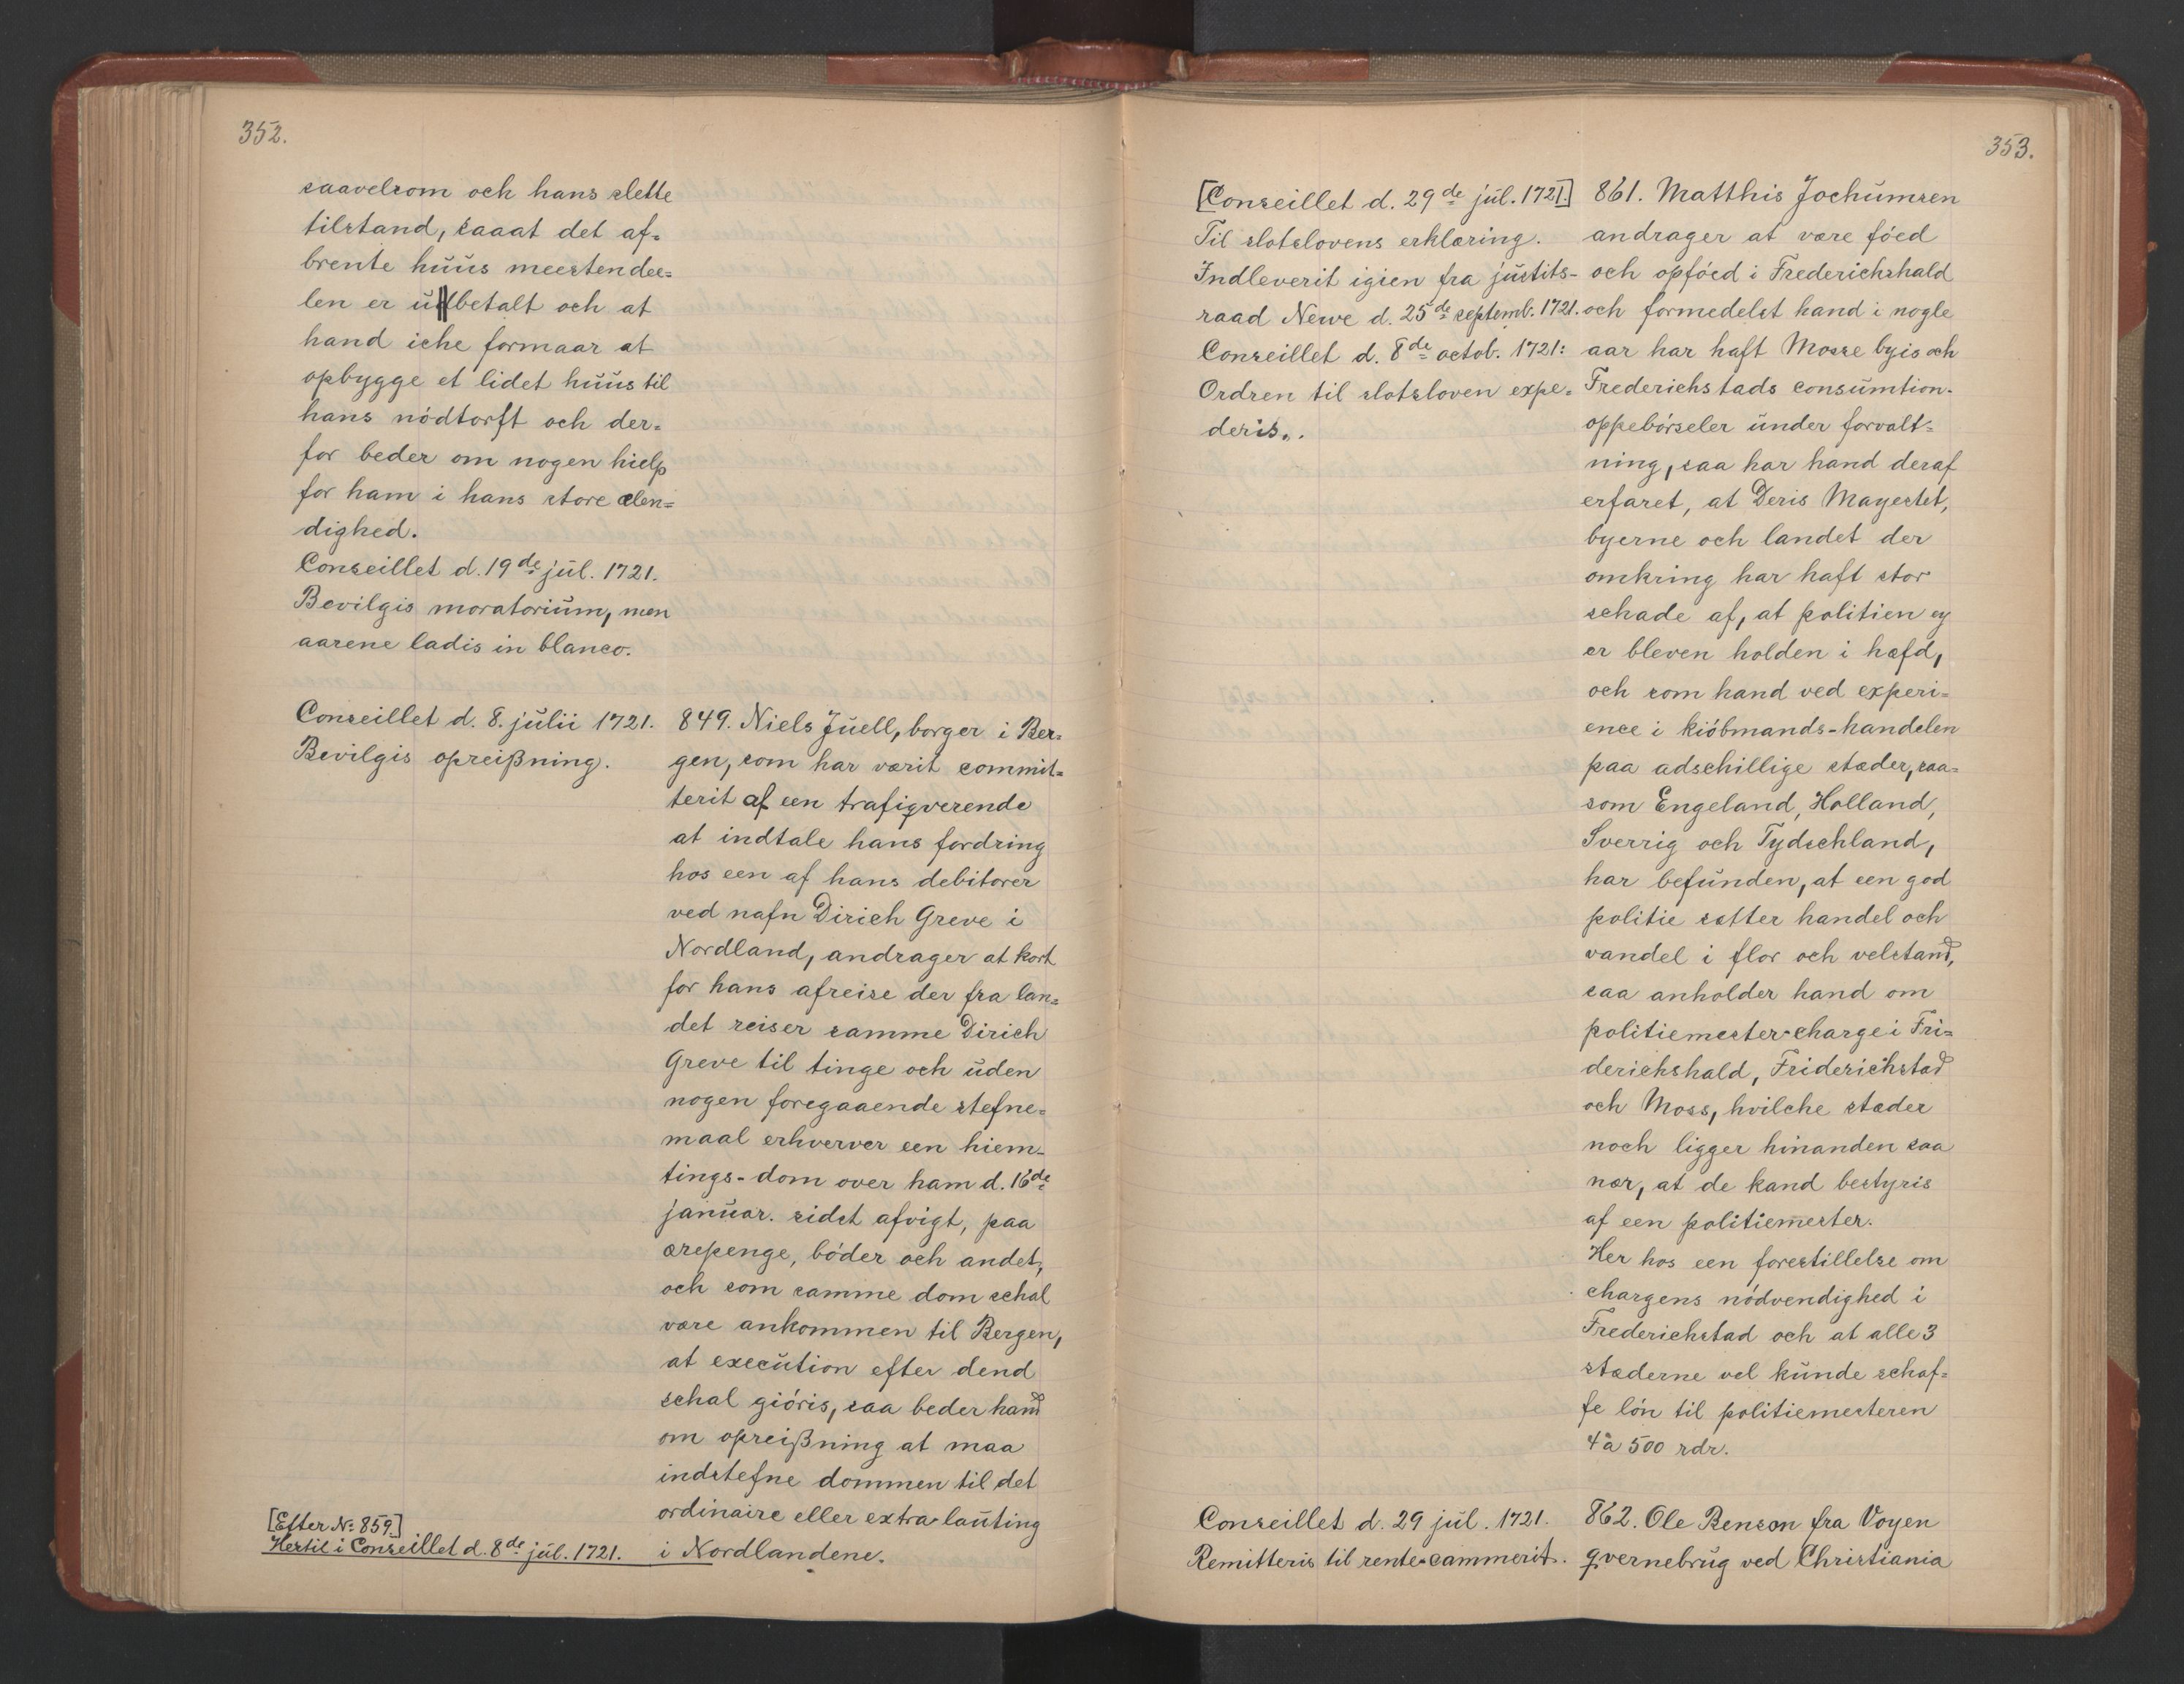 352.
saavelsom och hans slette
tilstand, saaat det af=
brente huus meestendee=
len er ubetalt och at
hand iche formaar at
opbygge et lidet huus til
hans nödtorft och der=
for beder om nogen hielp
for ham i hans store elen=
dighed.
Conseillet d. 19de jul. 1721.
Bevilgis moratorium, men
aarene ladis in blanco.
Conseillet d. 8. julii 1721.
Bevilgis opreißning.
849. Niels Juell, borger i Ber=
gen, som har værit commit=
terit af een trafiqverende
at indtale hans fordring
hos een af hans debitorer
ved nafn Dirich Greve i
Nordland, andrager at kort
for hans afreise der fra lan=
det reiser samme Dirich
Greve til tinge och uden
nogen foregaaende stefne=
maal erhverver een hiem=
tings-dom over ham d. 16de
januar. sidst afvigt, paa
ærepenge, böder och andet,
och som samme dom schal
være ankommen til Bergen,
at execution efter dend
schal giöris, saa beder hand
om opreißning at maa
indstefne dommen til det
ordinaire eller extra-lauting
i Nordlandene.
[Efter No 859.]
Hertil i Conseillet d. 8de jul. 1721.
353.
[Conseillet d. 29de jul. 1721.]
Til slotslovens erklæring.
Indleverit igien fra justits-
raad Newe d. 25de septemb. 1721.
Conseillet d. 8de octob. 1721:
Ordren til slotsloven expe=
deris..
861. Matthis Jochumsen
andrager at være föed
och opföed i Frederichshald
och formedelst hand i nogle
aar har haft Mosse byis och
Frederichstads consumtion-
oppebörseler under forvalt=
ning, saa har hand deraf
erfaret, at Deris Mayestet,
byerne och landet der
omkring har haft stor
schade af, at politien ey
er bleven holden i hæfd,
och som hand ved experi=
ence i kiöbmands-handelen
paa adschillige stæder, saa=
som Engeland, Holland,
Sverrig och Tydschland,
har befunden, at een god
politie sætter handel och
vandel i flor och velstand,
saa anholder hand om
politiemester-charge i Fri=
derichshald, Friderichstad
och Moss, hvilche stæder
noch ligger hinanden saa
nær, at de kand bestyris
af een politiemester.
Her hos een forestillelse om
chargens nödvendighed i
Frederichstad och at alle 3
stæderne vel kunde schaf=
fe lön til politiemesteren
4 à 500 rdr.
Conseillet d. 29 jul. 1721.
Remitteris til rente-cammerit.
862. Ole Benson fra Voyen
qvernebrug ved Christiania